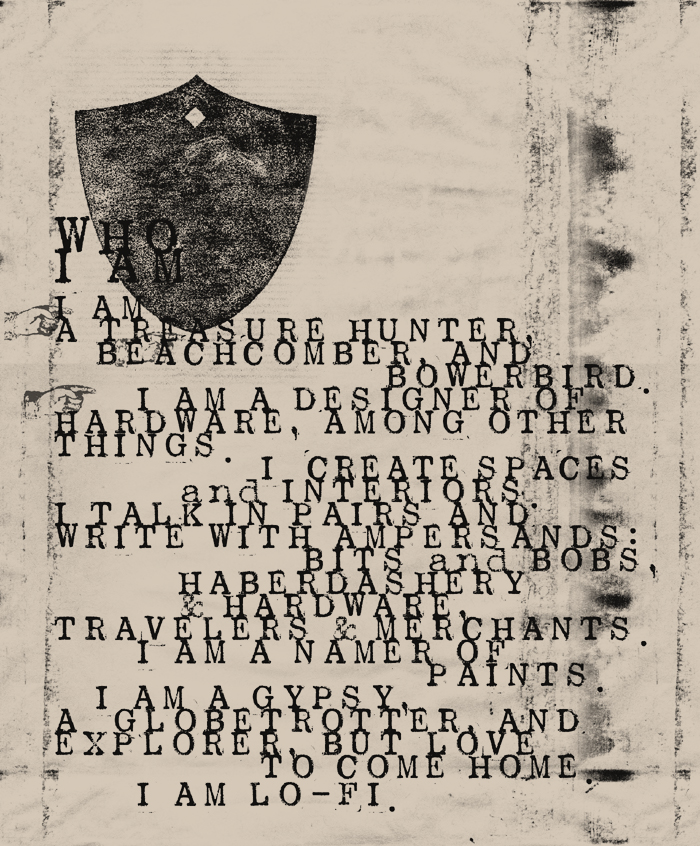 WHO
I AM
I AM
A TREASURE HUNTER,
BEACHCOMBER, AND
BOWERBIRD.
I AM A DESIGNER OF
HARDWARE, AMONG OTHER
THINGS.
I CREATE SPACES
and INTERIORS.
I TALK IN PAIRS AND
WRITE WITH AMPERSANDS:
BITS and BOBS,
HABERDASHERY
& HARDWARE,
TRAVELERS & MERCHANTS.
I AM A NAMER OF
PAINTS.
I AM A GYPSY,
A GLOBETROTTER, AND
EXPLORER, BUT LOVE
TO COME HOME.
I AM LO-FI.